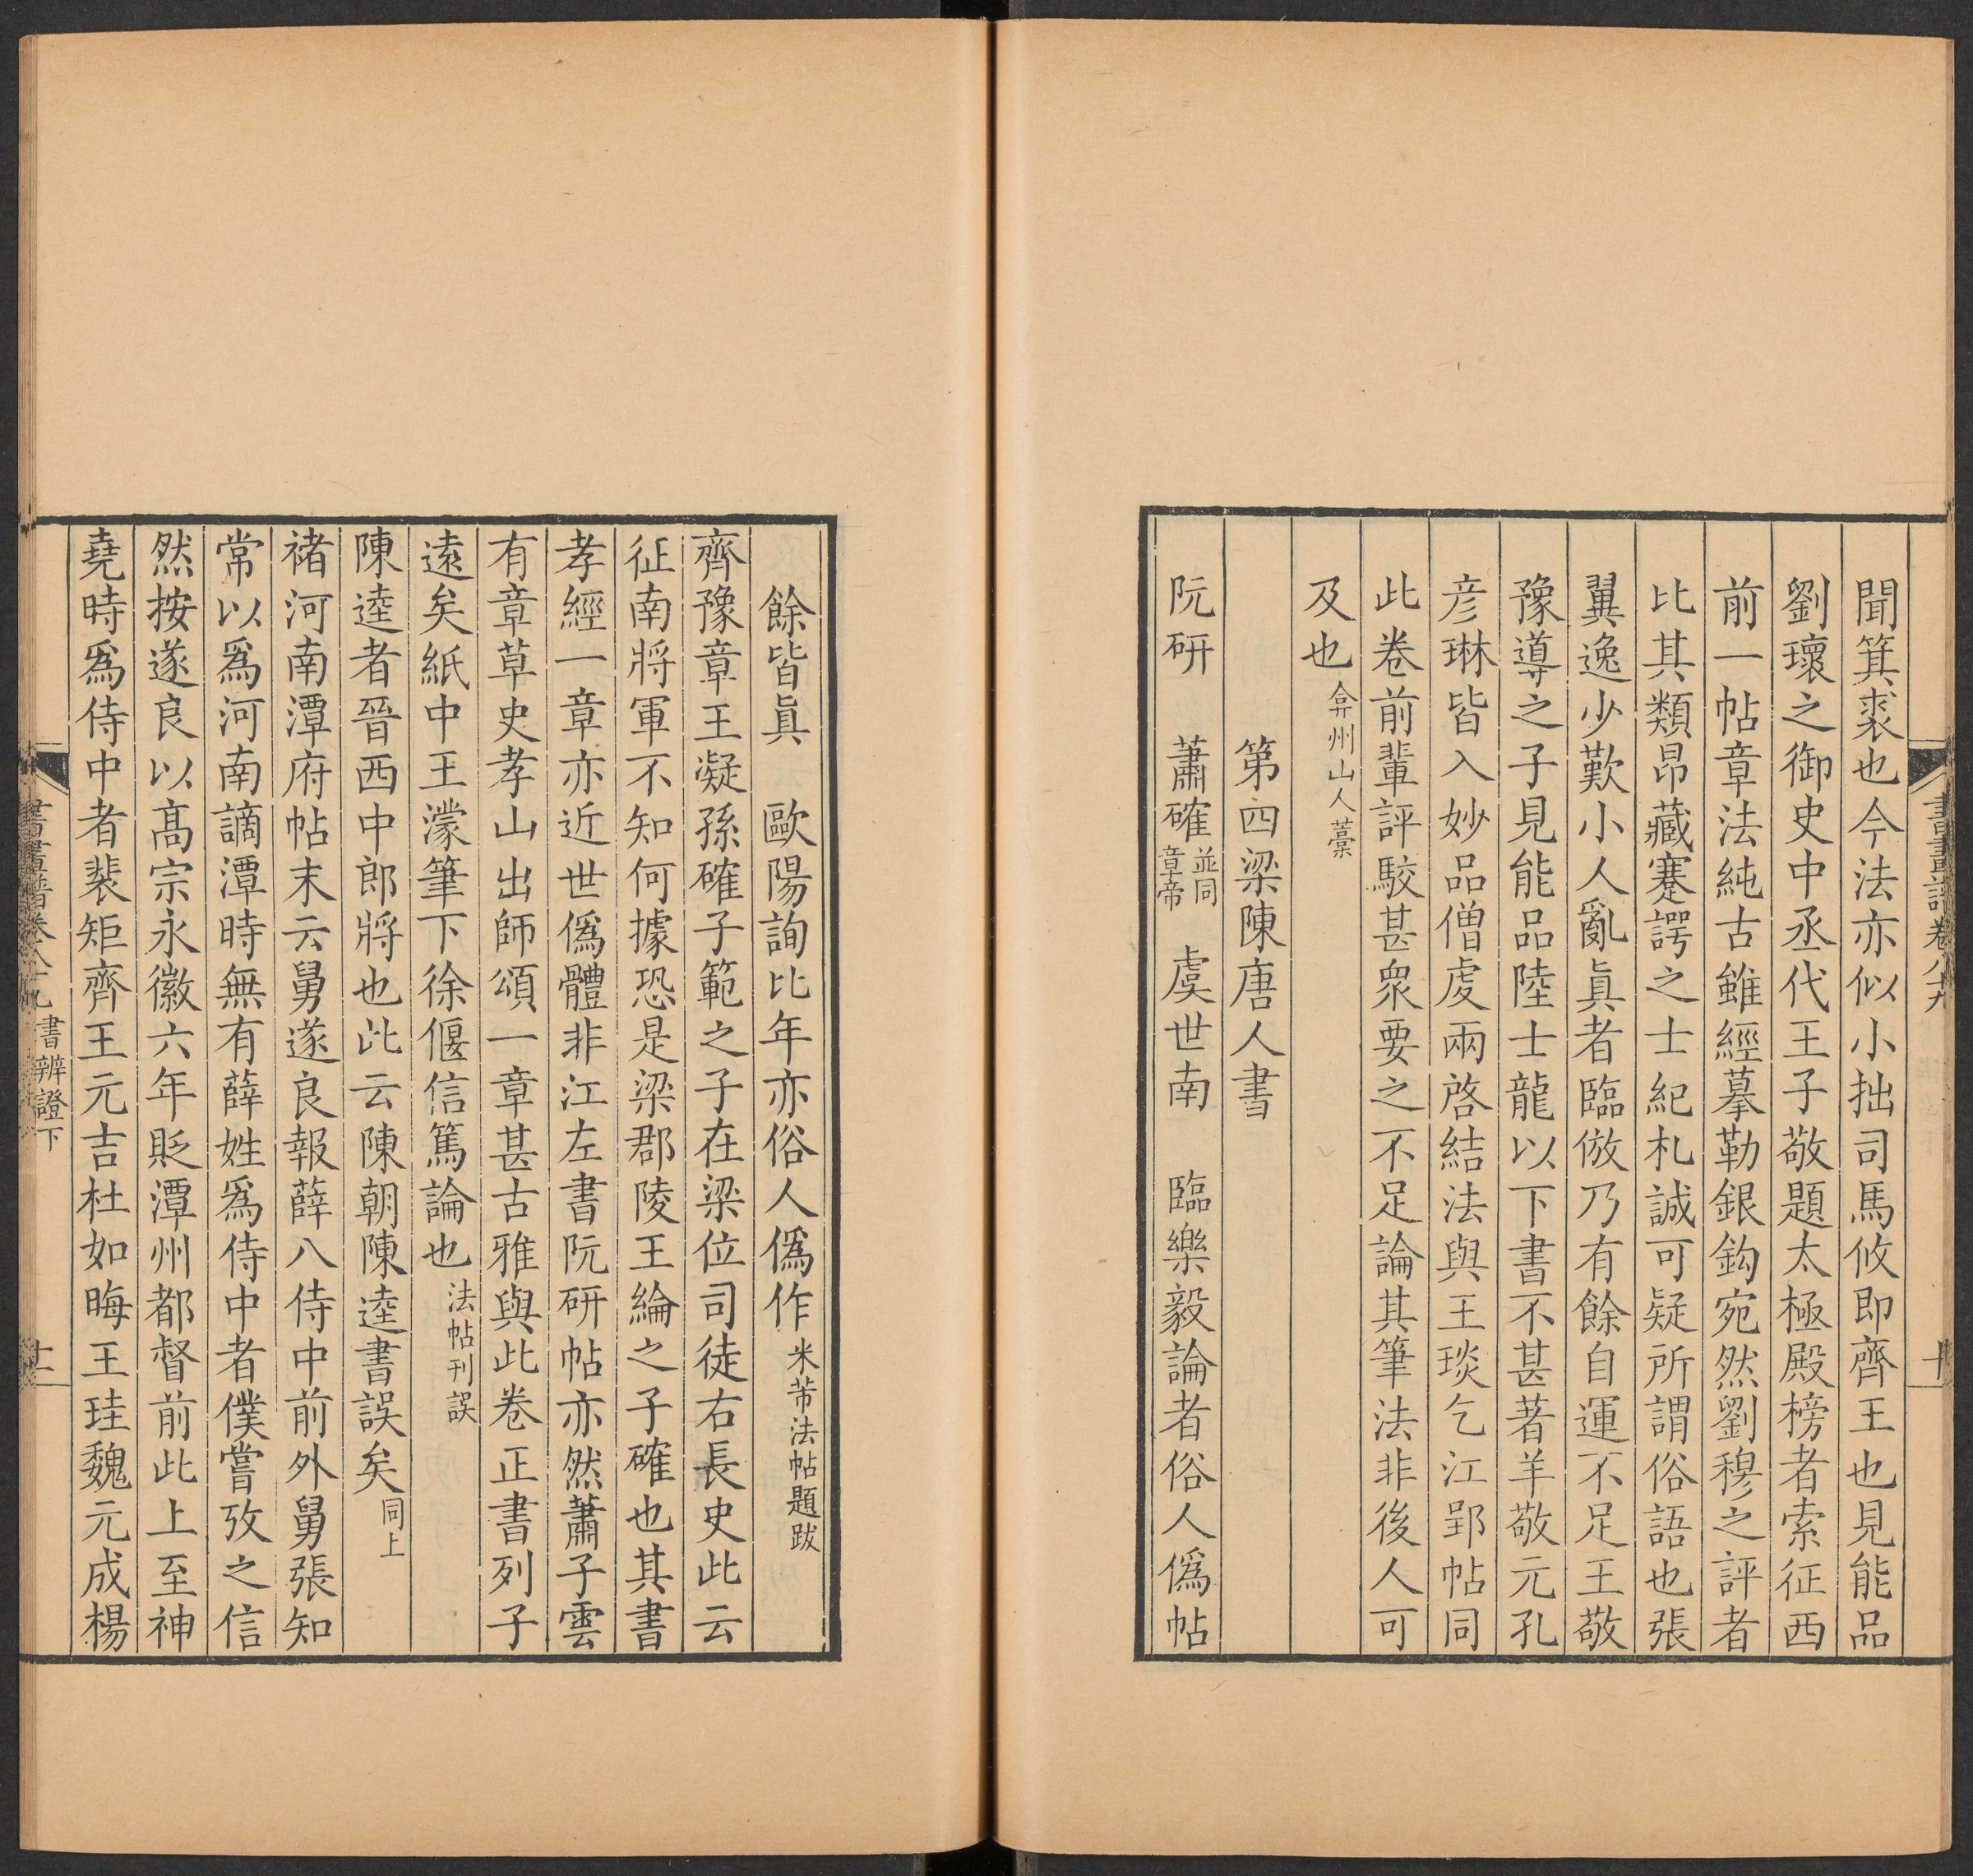 書畫譜卷八十九
十
聞箕裘也今法亦似小拙司馬攸即齊王也見能品
劉瓌之御史中丞代王子敬題太極殿榜者索征西
前一帖章法純古雖經摹勒銀鈎宛然劉穆之評者
比其類昂藏蹇諤之士紀札誠可疑所謂俗語也張
翼逸少歎小人亂眞者臨倣乃有餘自運不足王敬
豫導之子見能品陸士龍以下書不甚著羊敬元孔
彦琳皆入妙品僧虔兩啓結法與王琰乞江郢帖同
此卷前輩評駮甚衆要之不足論其筆法非後人可
及也弇州山人藁
第四梁陳唐人書
阮研　蕭確並同章帝　虞世南　臨樂毅論者俗人僞帖
餘皆眞　歐陽詢比年亦俗人僞作米芾法帖題跋
齊豫章王凝孫確子範之子在梁位司徒右長史此云
征南將軍不知何據恐是梁郡陵王綸之子確也其書
孝經一章亦近世僞體非江左書阮研帖亦然蕭子雲
有章草史孝山出師頌一章甚古雅與此卷正書列子
遠矣紙中王濛筆下徐偃信篤論也法帖刊誤
陳逵者晉西中郎將也此云陳朝陳逵書誤矣同上
褚河南潭府帖末云舅遂良報薛八侍中前外舅張知
常以爲河南謫潭時無有薛姓爲侍中者僕嘗攷之信
然按遂良以髙宗永徽六年貶潭州都督前此上至神
堯時爲侍中者裴矩齊王元吉杜如晦王珪魏元成楊
書畫譜卷八十九　書辨證下
十一